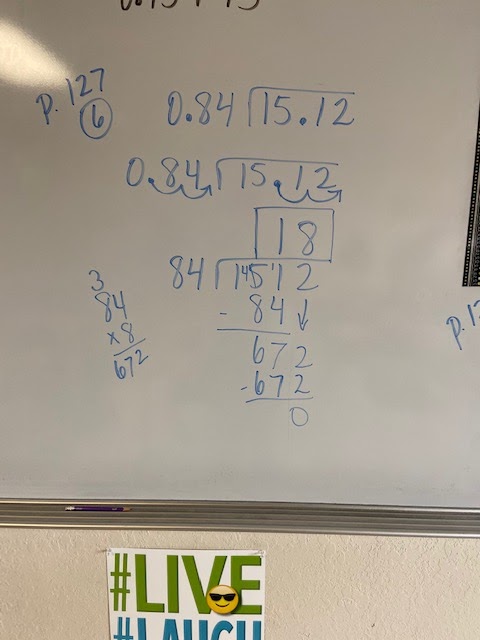 p. 127
6
0.84 15.12
0.84 15.12
18
84 1512
- 84
672
- 672
0
3
84
x 8
672
#LIVE
#LAUGH